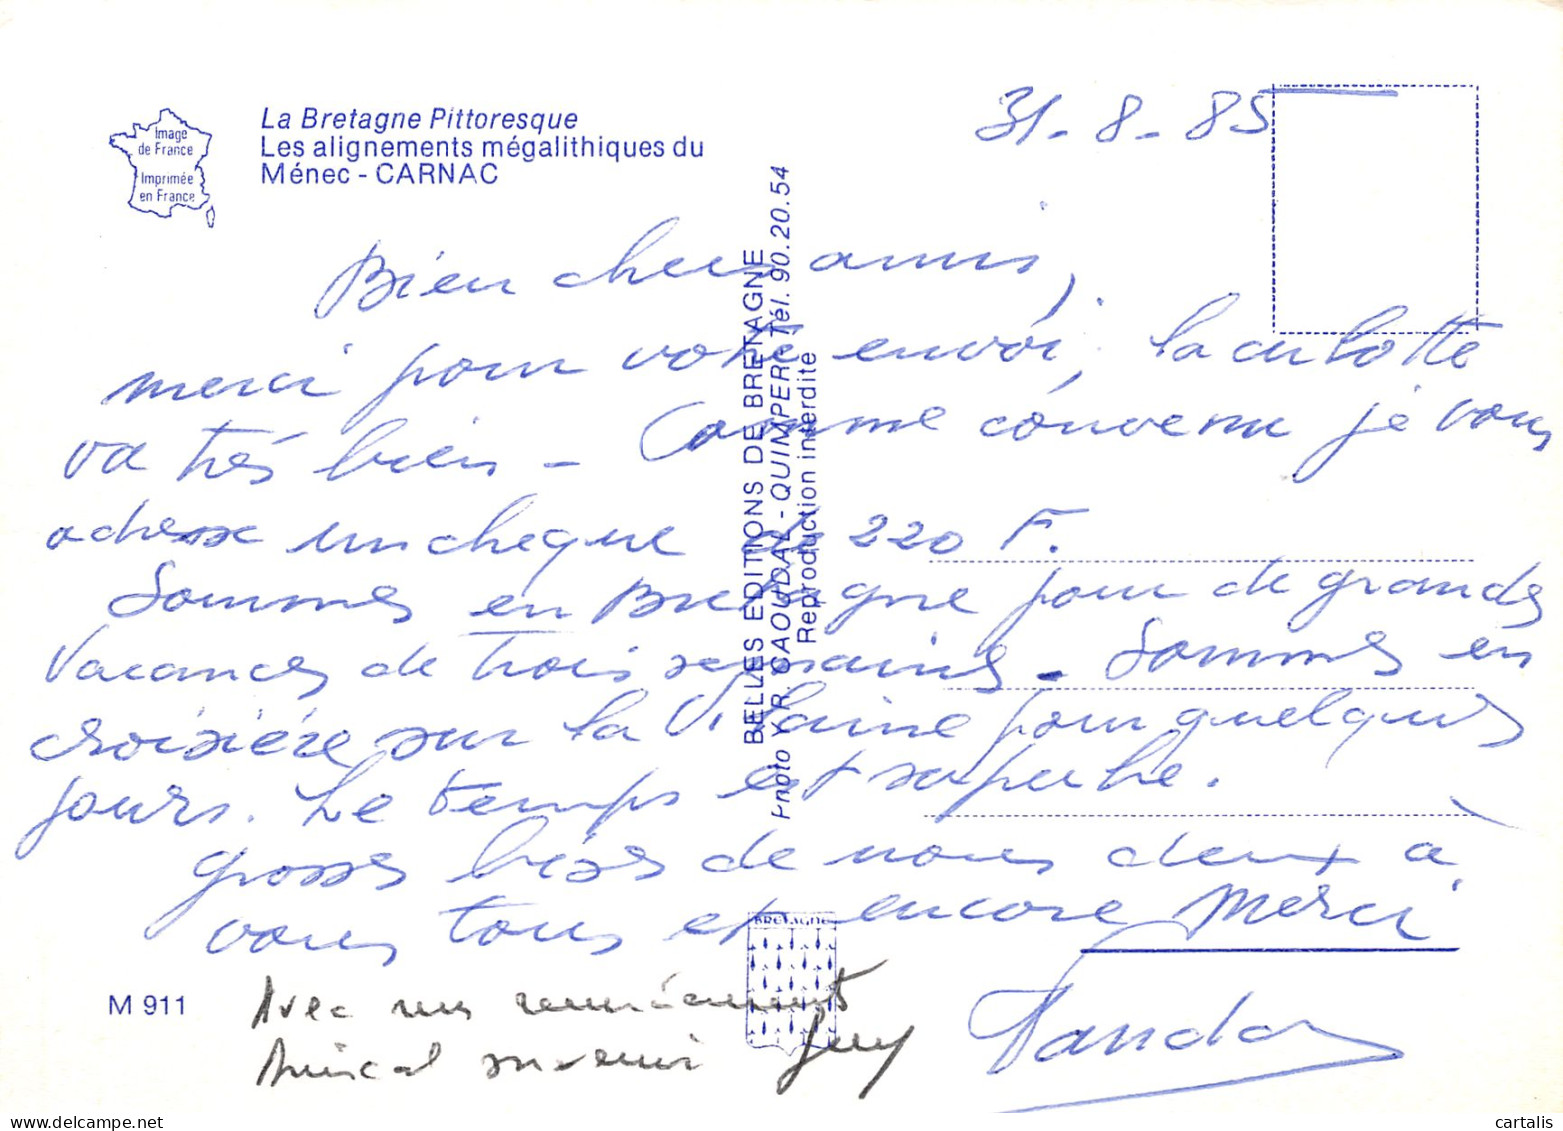 Image
de France
Imprimée
en France
La Bretagne Pittoresque
Les alignements mégalithiques du
Ménec - CARNAC
31 - 8 - 85
BELLES EDITIONS DE BRETAGNE
Photo Y.R. CAOUDAL - QUIMPER Tél. 90.20.54
Reproduction interdite
Bien chers amis,
merci pour votre envoi, la culotte
va très bien - Comme convenu je vous
adresse un chèque de 220 F.
Sommes en Bretagne pour de grandes
vacances de trois semaines - Sommes en
croisière sur la Vilaine pour quelques
jours. Le temps est superbe.
grosses bises de nous deux à
vous tous et encore merci
BRETAGNE
M 911
Avec mes remerciements
Amical souvenir Guy